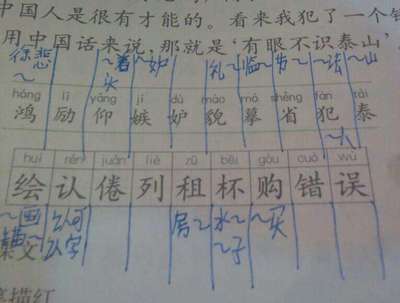 中国人是很有才能的。看来我犯了一个
用中国话来说,那就是‘有眼不识泰山’
~着 ~妒 礼~ 临~ 节~ ~法 ~山
~头
hóng lì yǎng jí dù mào mó shěng fàn tài
鸿 励 仰 嫉 妒 貌 摹 省 犯 泰
~人
huì rèn juàn liè zū bēi gòu cuò wù
绘 认 倦 列 租 杯 购 错 误
~画 认可 房~ 水~ ~买
描~ 认字 ~子
描红